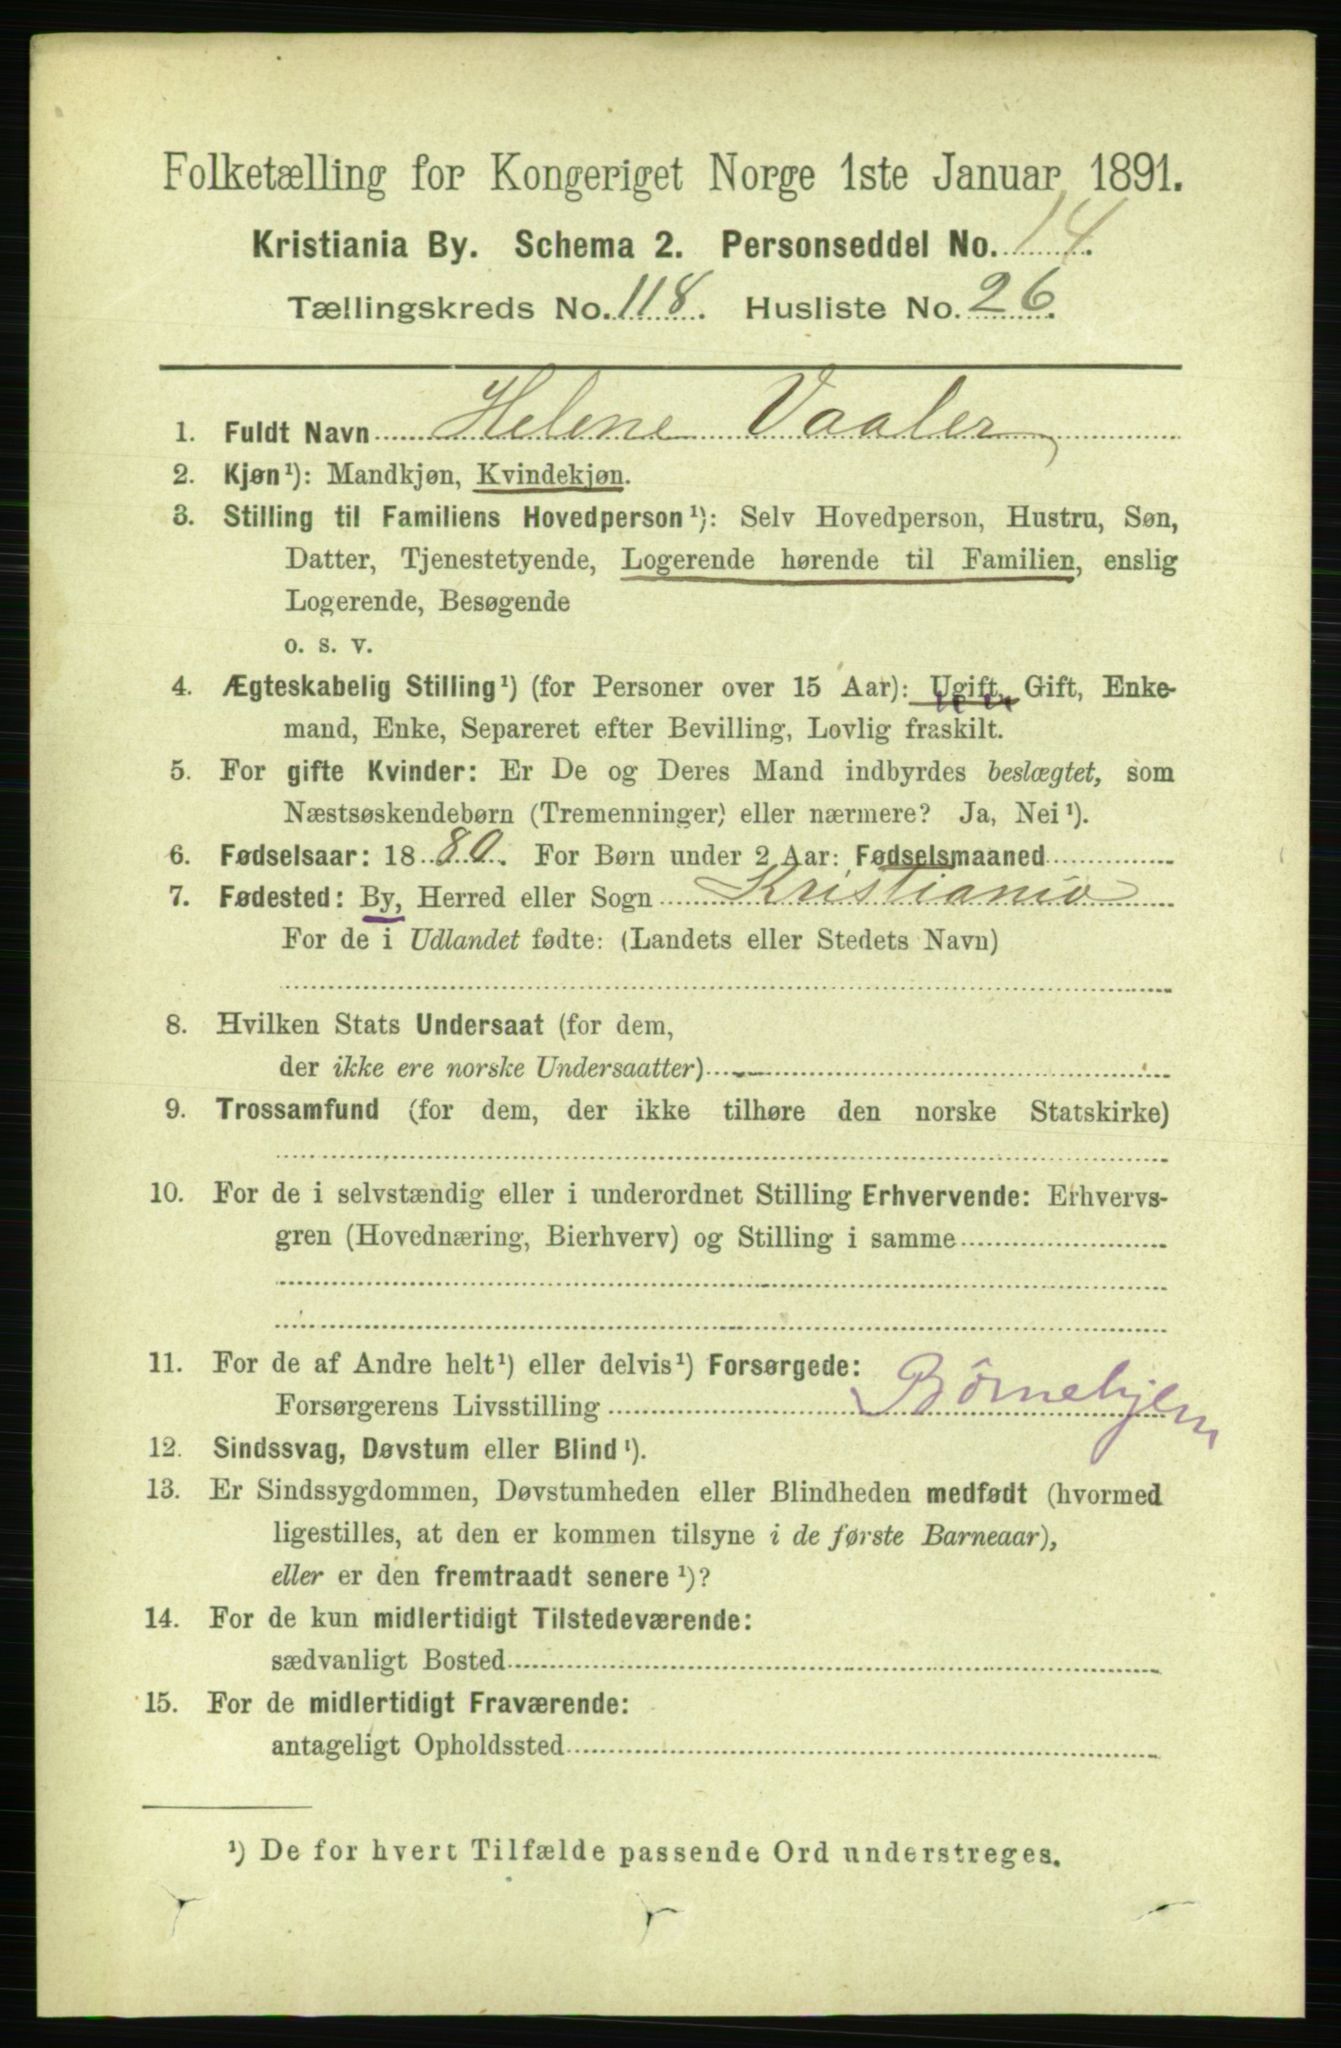 Folketælling for Kongeriget Norge 1ste Januar 1891.
Kristiania By. Schema 2. Personseddel No. 14.
Tællingskreds No. 118. Husliste No. 26.
1. Fuldt Navn Helene Vaaler
2. Kjøn¹): Mandkjøn, Kvindekjøn.
3. Stilling til Familiens Hovedperson¹): Selv Hovedperson, Hustru, Søn,
Datter, Tjenestetyende, Logerende hørende til Familien, enslig
Logerende, Besøgende
o. s. v.
4. Ægteskabelig Stilling¹) (for Personer over 15 Aar): Ugift, Gift, Enke-
mand, Enke, Separeret efter Bevilling, Lovlig fraskilt.
5. For gifte Kvinder: Er De og Deres Mand indbyrdes beslægtet, som
Næstsøskendebørn (Tremenninger) eller nærmere? Ja, Nei¹).
6. Fødselsaar: 1880. For Børn under 2 Aar: Fødselsmaaned
7. Fødested: By, Herred eller Sogn Kristiania
For de i Udlandet fødte: (Landets eller Stedets Navn)
8. Hvilken Stats Undersaat (for dem,
der ikke ere norske Undersaatter)
9. Trossamfund (for dem, der ikke tilhøre den norske Statskirke)
10. For de i selvstændig eller i underordnet Stilling Erhvervende: Erhvervs-
gren (Hovednæring, Bierhverv) og Stilling i samme
11. For de af Andre helt¹) eller delvis¹) Forsørgede:
Forsørgerens Livsstilling Börnehjem
12. Sindssvag, Døvstum eller Blind¹).
13. Er Sindssygdommen, Døvstumheden eller Blindheden medfødt (hvormed
ligestilles, at den er kommen tilsyne i de første Barneaar),
eller er den fremtraadt senere¹)?
14. For de kun midlertidigt Tilstedeværende:
sædvanligt Bosted
15. For de midlertidigt Fraværende:
antageligt Opholdssted
¹) De for hvert Tilfælde passende Ord understreges.